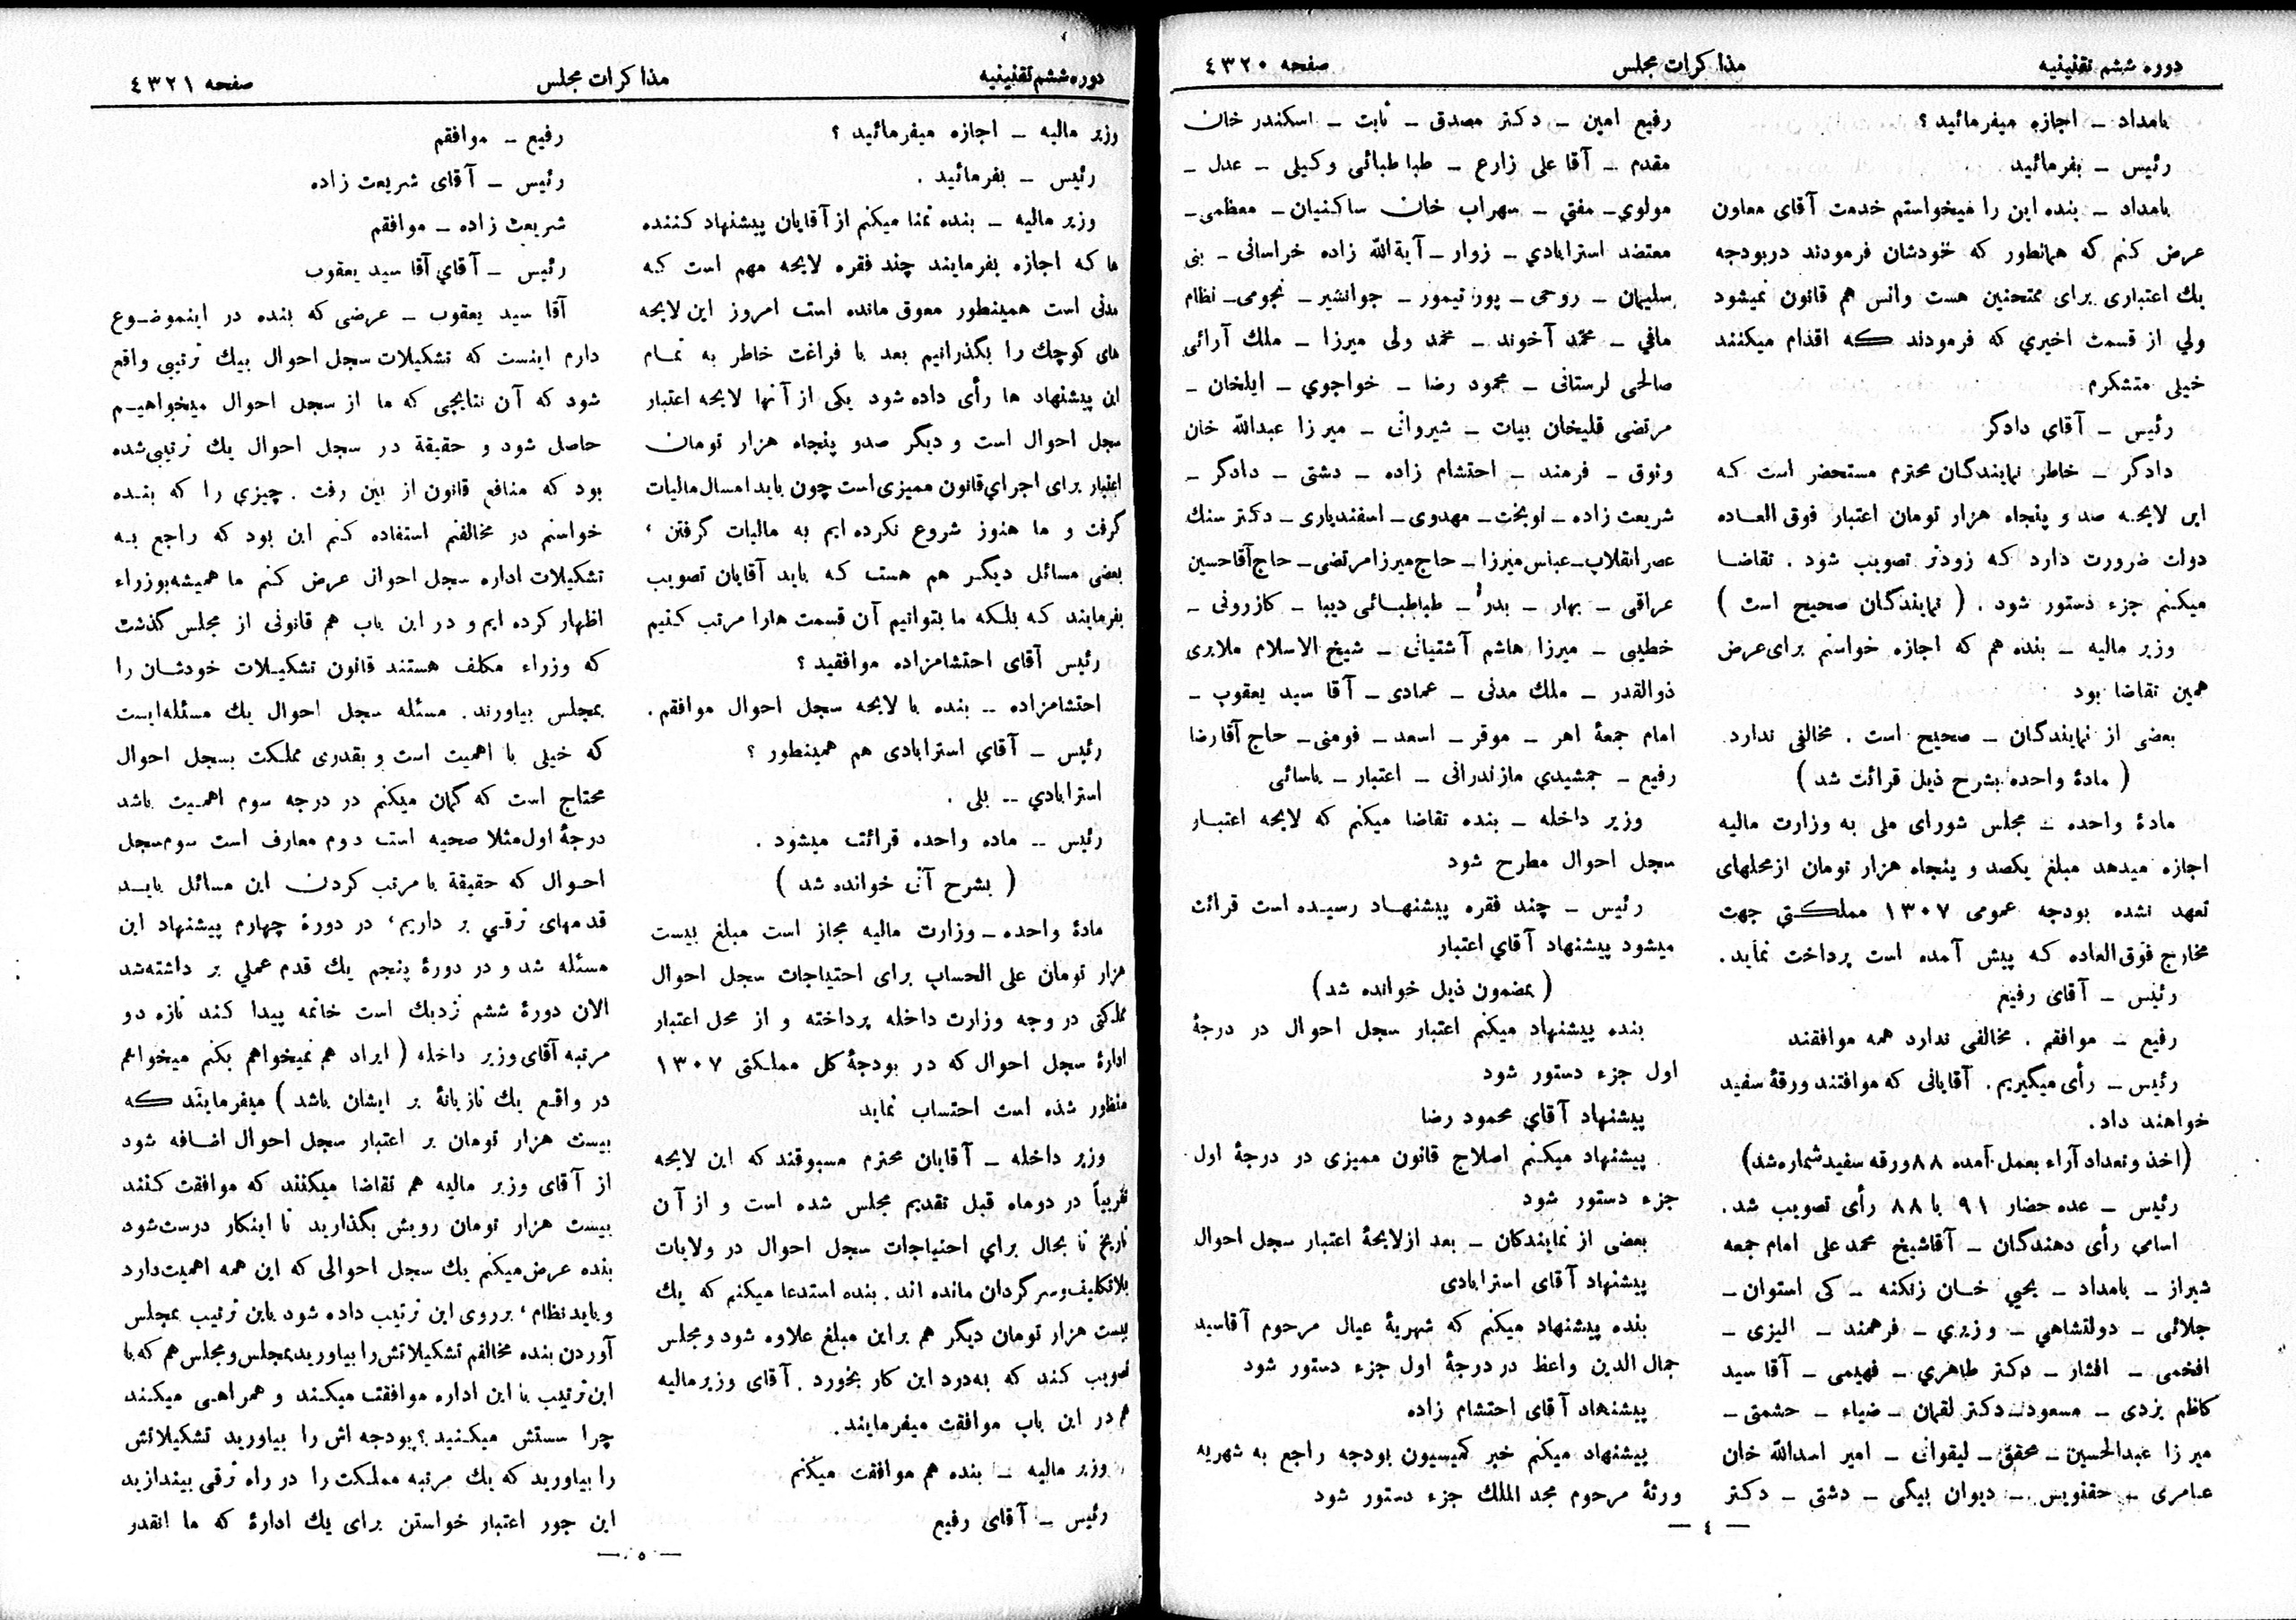 دوره ششم تقنینیه
مذاکرات مجلس
صفحه ٤٣٢٠
بامداد ـ اجازه میفرمائید ؟
رئیس ـ بفرمائید
بامداد ـ بنده این را میخواستم خدمت آقای معاون
عرض کنم که همانطور که خودشان فرمودند دربودجه
یك اعتباری برای ممتحنین هست وانس هم قانون نمیشود
ولي از قسمت اخیري که فرمودند که اقدام میکنند
خیلی متشکرم
رئیس ـ آقاي دادگر
دادگر ـ خاطر نمایندگان محترم مستحضر است که
این لایحه صد و پنجاه هزار تومان اعتبار فوق العاده
دولت ضرورت دارد که زودتر تصویب شود . تقاضا
میکنم جزء دستور شود . ( نمایندگان صحیح است )
وزیر مالیه ـ بنده هم که اجازه خواستم برای عرض
همین تقاضا بود
بعضی از نمایندگان ـ صحیح است . مخالفی ندارد
( مادۀ واحده بشرح ذیل قرائت شد )
مادۀ واحده ـ مجلس شورای ملی به وزارت مالیه
اجازه میدهد مبلغ یکصد و پنجاه هزار تومان ازمحلهای
تعهد نشده بودجه عمومی ١٣٠٧ مملکتي جهت
مخارج فوق العاده که پیش آمده است پرداخت نماید .
رئیس ـ آقای رفیع
رفیع ـ موافقم . مخالفی ندارد همه موافقند
رئیس ـ رأی میگیریم . آقایانی که موافقند ورقۀ سفید
خواهند داد .
(اخذ وتعداد آراء بعمل آمده ٨٨ ورقه سفید شماره شد)
رئیس ـ عده حضار ٩١ با ٨٨ رأی تصویب شد .
اسامي رأی دهندگان ـ آقاشیخ محمد علی امام جمعه
شیراز ـ بامداد ـ یحیي خان زنگنه ـ کی استوان ـ
جلائی ـ دولتشاهي ـ وزیري ـ فرهمند ـ الیزی ـ
افخمی ـ افشار ـ دکتر طاهري ـ فهیمی ـ آقا سید
کاظم یزدی ـ مسعود ـ دکتر لقمان ـ ضیاء ـ حشمتی ـ
میر زا عبدالحسین ـ محقق ـ لیقوانی ـ امیر اسدالله خان
عامری ـ حقنویس ـ دیوان بیگی ـ دشتی ـ دکتر
رفیع امین ـ دکتر مصدق ـ ثابت ـ اسکندر خان
مقدم ـ آقا علی زارع ـ طباطبائی وکیلی ـ عدل ـ
مولوي ـ مفتي ـ سهراب خان ساکنیان ـ معظمی ـ
معتضد استرابادي ـ زوار ـ آیةالله زاده خراسانی ـ بنی
سلیمان ـ روحی ـ پور تیمور ـ جوانشیر ـ نجومی ـ نظام
مافي ـ محمد آخوند ـ محمد ولی میرزا ـ ملك آرائی
صالحی لرستانی ـ محمود رضا ـ خواجوي ـ ایلخان ـ
مرتضی قلیخان بیات ـ شیروانی ـ میر زا عبدالله خان
وثوق ـ فرمند ـ احتشام زاده ـ دشتی ـ دادگر ـ
شریعت زاده ـ نوبخت ـ مهدوی ـ اسفندیاری ـ دکتر سنك
عصر انقلاب ـ عباس میرزا ـ حاج میرزا مرتضی ـ حاج آقا حسین
عراقی ـ بهار ـ بدر ـ طباطبائی دیبا ـ کازرونی ـ
خطیبی ـ میرزا هاشم آشتیانی ـ شیخ الاسلام ملایری
ذوالقدر ـ ملك مدنی ـ عمادی ـ آقا سید یعقوب ـ
امام جمعۀ اهر ـ موقر ـ اسعد ـ فومنی ـ حاج آقا رضا
رفیع ـ جمشیدي مازندرانی ـ اعتبار ـ یاسائی
وزیر داخله ـ بنده تقاضا میکنم که لایحه اعتبار
سجل احوال مطرح شود
رئیس ـ چند فقره پیشنهاد رسیده است قرائت
میشود پیشنهاد آقاي اعتبار
( بمضمون ذیل خوانده شد )
بنده پیشنهاد میکنم اعتبار سجل احوال در درجۀ
اول جزء دستور شود
پیشنهاد آقاي محمود رضا
پیشنهاد میکنم اصلاح قانون ممیزی در درجۀ اول
جزء دستور شود
بعضی از نمایندکان ـ بعد از لایحۀ اعتبار سجل احوال
پیشنهاد آقای استرابادی
بنده پیشنهاد میکنم که شهریۀ عیال مرحوم آقاسید
جمال الدین واعظ در درجۀ اول جزء دستور شود
پیشنهاد آقای احتشام زاده
پیشنهاد میکنم خبر کمیسیون بودجه راجع به شهریه
ورثۀ مرحوم مجد الملك جزء دستور شود
ـ ٤ ـ
دوره ششم تقنینیه
مذاکرات مجلس
صفحه ٤٣٢١
وزیر مالیه ـ اجازه میفرمائید ؟
رئیس ـ بفرمائید .
وزیر مالیه ـ بنده تمنا میکنم از آقایان پیشنهاد کننده
ها که اجازه بفرمایند چند فقره لایحه مهم است که
مدتی است همینطور معوق مانده است امروز این لایحه
های کوچك را بگذرانیم بعد با فراغت خاطر به تمام
این پیشنهاد ها رأی داده شود یکی از آنها لایحه اعتبار
سجل احوال است و دیگر صدو پنجاه هزار تومان
اعتبار برای اجراي قانون ممیزی است چون باید امسال مالیات
گرفت و ما هنوز شروع نکرده ایم به مالیات گرفتن ،
بعضی مسائل دیگر هم هست که باید آقایان تصویب
بفرمایند که بلکه ما بتوانیم آن قسمت هارا مرتب کنیم
رئیس آقای احتشامزاده موافقید ؟
احتشامزاده ـ بنده با لایحه سجل احوال موافقم .
رئیس ـ آقاي استرابادی هم همینطور ؟
استرابادي ـ بلی .
رئیس ـ ماده واحده قرائت میشود .
( بشرح آتی خوانده شد )
مادۀ واحده ـ وزارت مالیه مجاز است مبلغ بیست
هزار تومان علی الحساب برای احتیاجات سجل احوال
مملکتی در وجه وزارت داخله پرداخته و از محل اعتبار
ادارۀ سجل احوال که در بودجۀ کل مملکتی ١٣٠٧
منظور شده است احتساب نماید
وزیر داخله ـ آقایان محترم مسبوقند که این لایحه
تقریباً در دوماه قبل تقدیم مجلس شده است و از آن
تاریخ تا بحال براي احتیاجات سجل احوال در ولایات
بلاتکلیف وسر گردان مانده اند . بنده استدعا میکنم که یك
بیست هزار تومان دیگر هم براین مبلغ علاوه شود ومجلس
تصویب کند که به درد این کار بخورد . آقای وزیر مالیه
هم در این باب موافقت میفرمایند .
وزیر مالیه ـ بنده هم موافقت میکنم
رئیس ـ آقای رفیع
رفیع ـ موافقم
رئیس ـ آقای شریعت زاده
شریعت زاده ـ موافقم
رئیس ـ آقاي آقا سید یعقوب
آقا سید یعقوب ـ عرضی که بنده در اینموضوع
دارم اینست که تشکیلات سجل احوال بیك ترتیبی واقع
شود که آن نتایجی که ما از سجل احوال میخواهیم
حاصل شود و حقیقة در سجل احوال یك ترتیبی شده
بود که منافع قانون از بین رفت . چیزي را که بنده
خواستم در مخالفتم استفاده کنم این بود که راجع به
تشکیلات اداره سجل احوال عرض کنم ما همیشه بوزراء
اظهار کرده ایم و در این باب هم قانونی از مجلس گذشت
که وزراء مکلف هستند قانون تشکیلات خودشان را
بمجلس بیاورند . مسئله سجل احوال یك مسئله ایست
که خیلی با اهمیت است و بقدری مملکت بسجل احوال
محتاج است که گمان میکنم در درجه سوم اهمیت باشد
درجۀ اول مثلا صحیه است دوم معارف است سوم سجل
احوال که حقیقة با مرتب کردن این مسائل باید
قدمهای ترقی بر داریم ، در دورۀ چهارم پیشنهاد این
مسئله شد و در دورۀ پنجم یك قدم عملي بر داشته شد
الان دورۀ ششم نزدیك است خاتمه پیدا کند تازه دو
مرتبه آقای وزیر داخله ( ایراد هم نمیخواهم بکنم میخواهم
در واقع یك تازیانۀ بر ایشان باشد ) میفرمایند که
بیست هزار تومان بر اعتبار سجل احوال اضافه شود
از آقای وزیر مالیه هم تقاضا میکنند که موافقت کنند
بیست هزار تومان رویش بگذارید تا اینکار درست شود
بنده عرض میکنم یك سجل احوالی که این همه اهمیت دارد
وباید نظام ، برروی این ترتیب داده شود باین ترتیب بمجلس
آوردن بنده مخالفم تشکیلاتش را بیاورید بمجلس ومجلس هم که با
این ترتیب با این اداره موافقت میکند و همراهی میکند
چرا سستش میکنید ؟ بودجه اش را بیاورید تشکیلاتش
را بیاورید که یك مرتبه مملکت را در راه ترقی بیندازید
این جور اعتبار خواستن برای یك ادارۀ که ما انقدر
ـ ٥ ـ